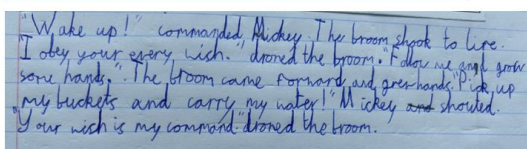 "Wake up!" commanded Mickey. The broom shook to life.
I obey your every wish." droned the broom. "Follow me and grow
some hands." The broom came forward, and grew hands. "Pick up
my buckets and carry my water!" Mickey shouted.
"Your wish is my command." droned the broom.